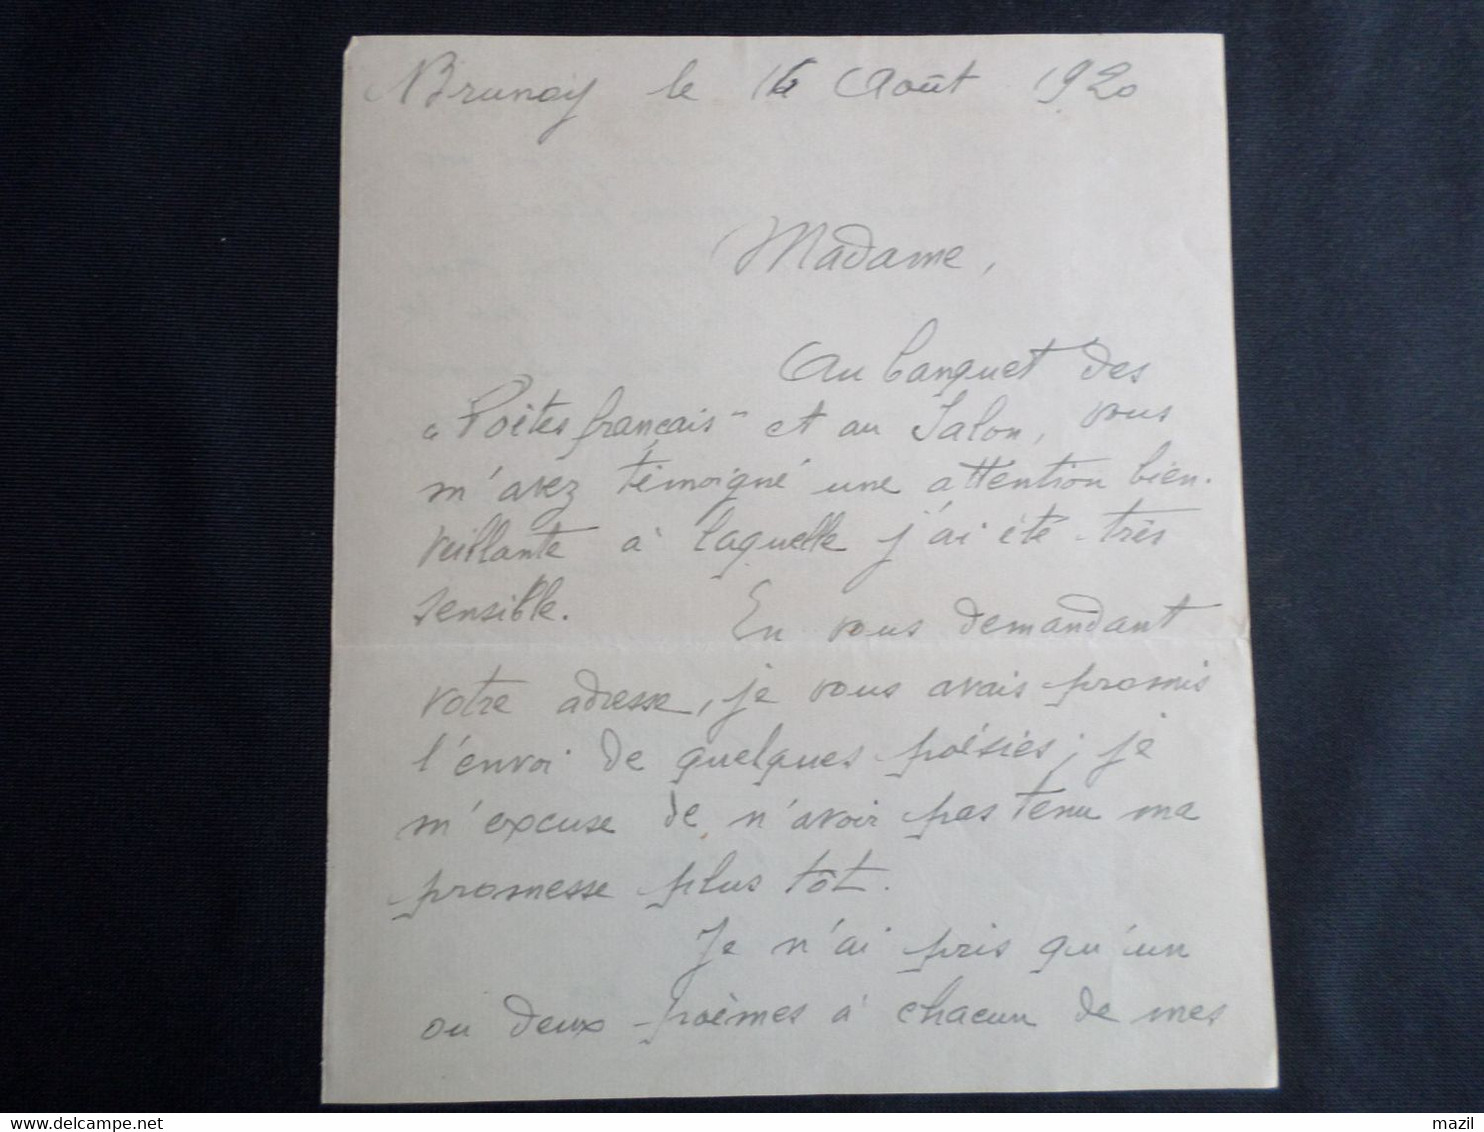 Brunoy le 16 Août 1920
Madame,
Au banquet des
"Poètes français" et au Salon, vous
m'avez témoigné une attention bien-
veillante à laquelle j'ai été très
sensible. En vous demandant
votre adresse, je vous avais promis
l'envoi de quelques poésies; je
m'excuse de n'avoir pas tenu ma
promesse plus tôt.
Je n'ai pris qu'un
ou deux poèmes à chacun de mes
mazil